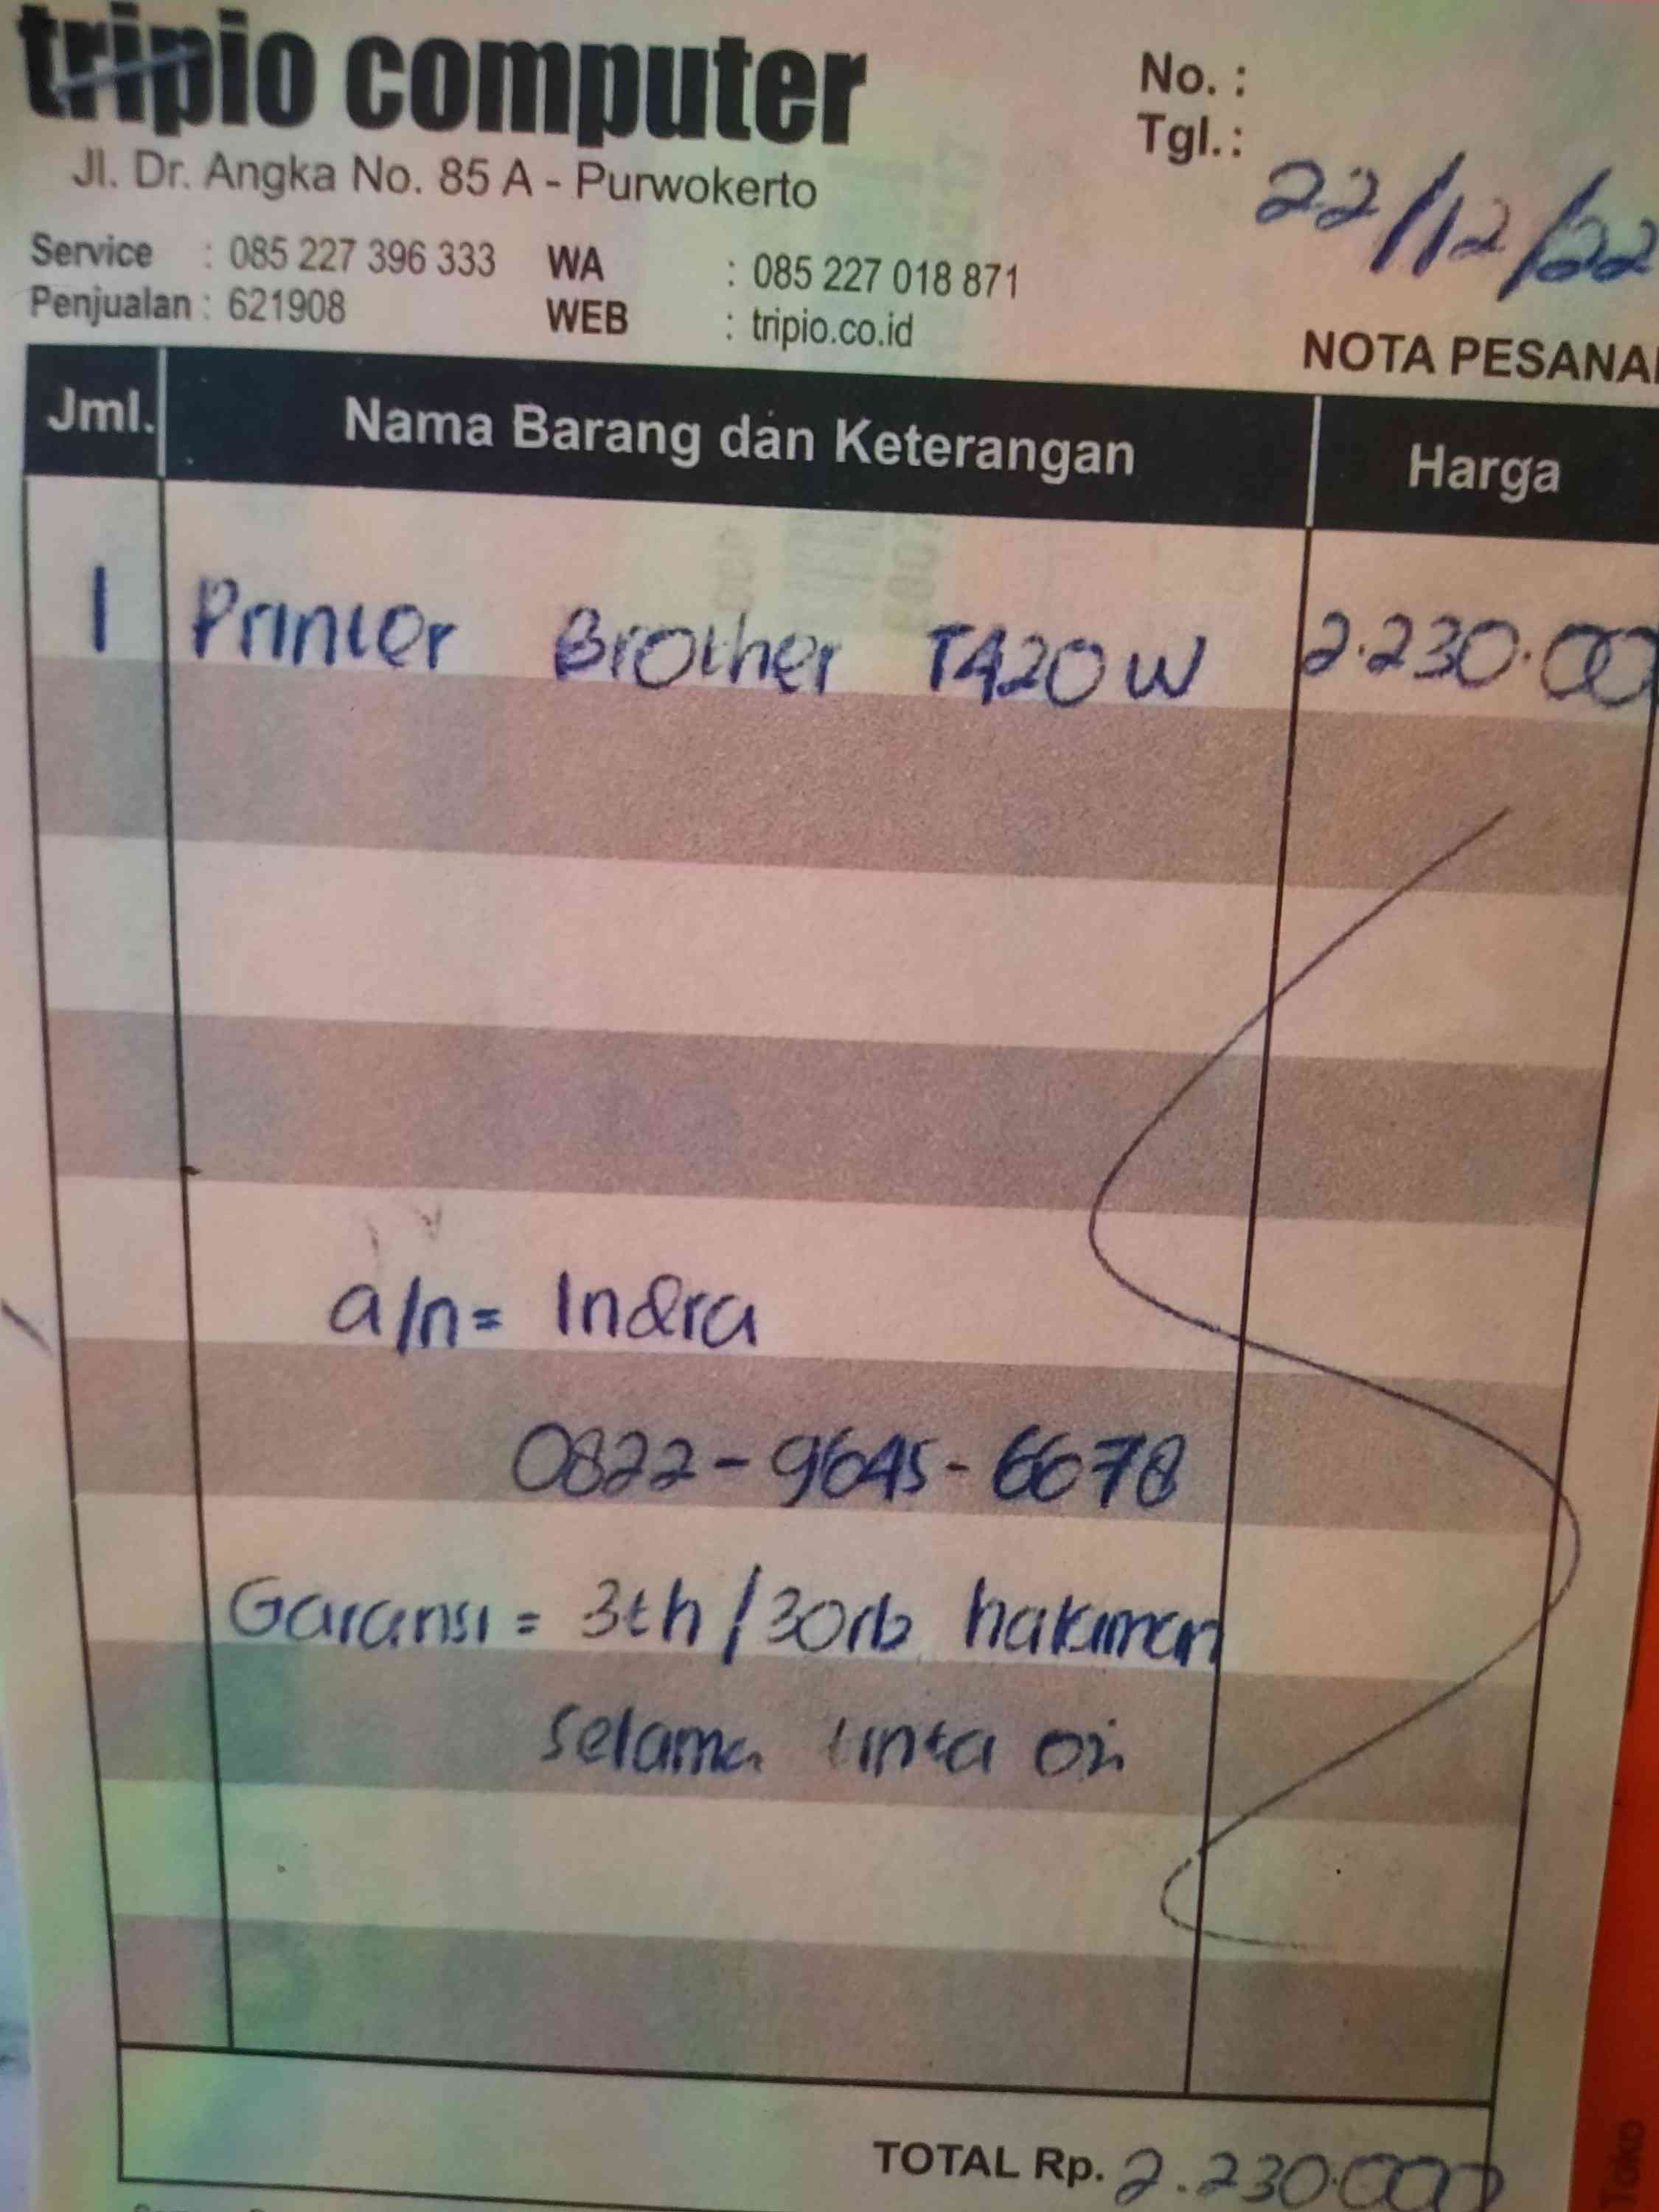 tripio computer
Jl. Dr. Angka No. 85 A - Purwokerto
Service : 085 227 396 333 WA : 085 227 018 871
Penjualan : 621908 WEB : tripio.co.id
No. :
Tgl. : 22/12/22
NOTA PESANA
Jml. Nama Barang dan Keterangan Harga
1 Printer Brother T420W 2.230.00
a/n = Indra
0822-9645-6678
Garansi = 3th / 30rb halaman
selama tinta ori
TOTAL Rp. 2.230.000
Toko